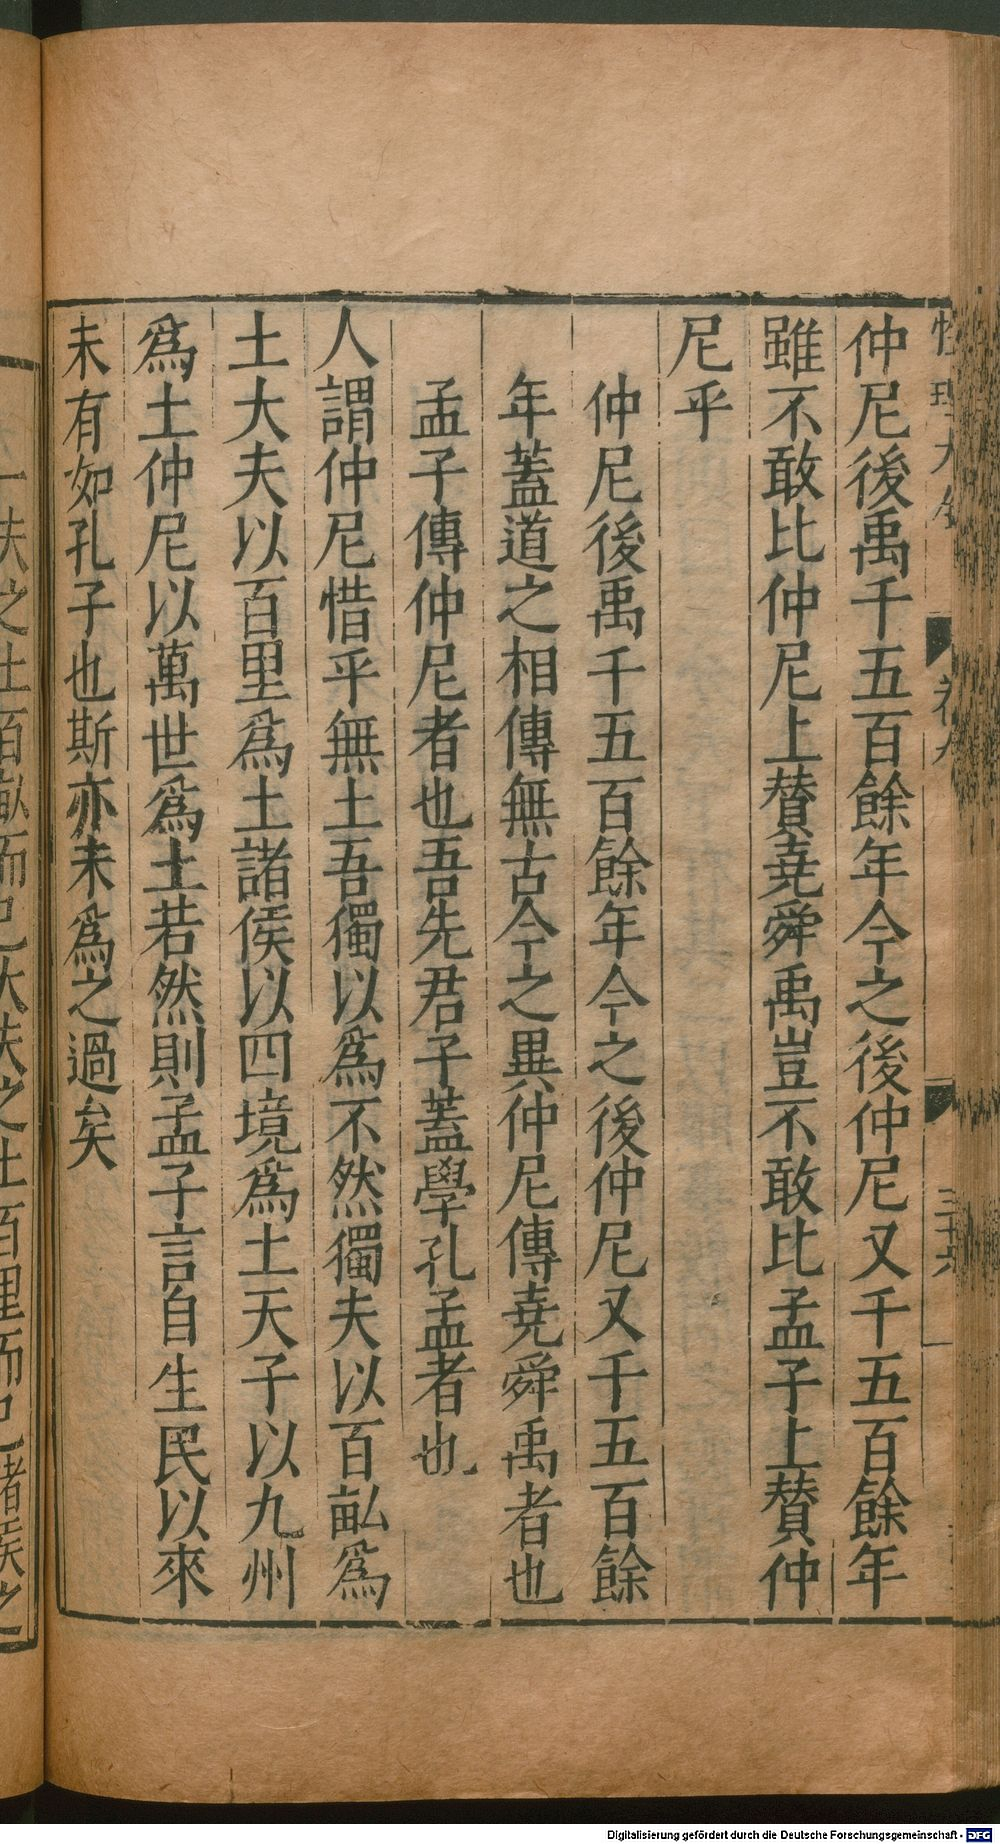 仲尼後禹千五百餘年今之後仲尼又千五百餘年
雖不敢比仲尼上賛堯舜禹豈不敢比孟子上賛仲
尼乎
仲尼後禹千五百餘年今之後仲尼又千五百餘
年蓋道之相傳無古今之異仲尼傳堯舜禹者也
孟子傳仲尼者也吾先君子蓋學孔孟者也
人謂仲尼惜乎無土吾獨以爲不然獨夫以百畆爲
土大夫以百里爲土諸侯以四境爲土天子以九州
爲土仲尼以萬世爲土若然則孟子言自生民以來
未有如孔子也斯亦未爲之過矣
卷九
三十六
Digitalisierung gefördert durch die Deutsche Forschungsgemeinschaft - DFG